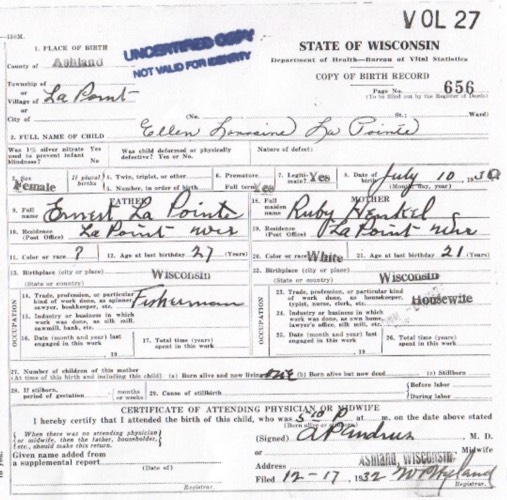 VOL 27
—130M.
1. PLACE OF BIRTH
UNCERTIFIED COPY
NOT VALID FOR IDENTITY
STATE OF WISCONSIN
County of Ashland
Department of Health—Bureau of Vital Statistics
COPY OF BIRTH RECORD
Township of
or
Village of La Point
or
City of
Page No. 656
(To be filled out by the Register of Deeds)
(No. St.; Ward)
2. FULL NAME OF CHILD Ellen Lorraine La Pointe
Was 1% silver nitrate used to prevent infant blindness? Yes or No.
Was child deformed or physically defective? Yes or No.
Nature of defect:
3. Sex Female
If plural births
4. Twin, triplet, or other
5. Number, in order of birth
6. Premature
Full term Yes
7. Legitimate? Yes
8. Date of birth July 10 1930
(Month, day, year)
FATHER
MOTHER
9. Full name Ernest La Pointe
18. Full maiden name Ruby Henkel
10. Residence (Post Office) La Point Wis
19. Residence (Post Office) La Point Wis
11. Color or race ?
12. Age at last birthday 27 (Years)
20. Color or race White
21. Age at last birthday 21 (Years)
13. Birthplace (city or place)
(State or country) Wisconsin
22. Birthplace (city or place)
(State or country) Wisconsin
OCCUPATION
14. Trade, profession, or particular kind of work done, as spinner, sawyer, bookkeeper, etc. Fisherman
15. Industry or business in which work was done, as silk mill, sawmill, bank, etc.
16. Date (month and year) last engaged in this work
19
17. Total time (years) spent in this work
OCCUPATION
23. Trade, profession, or particular kind of work done, as housekeeper, typist, nurse, clerk, etc. Housewife
24. Industry or business in which work was done, as own home, lawyer's office, silk mill, etc.
25. Date (month and year) last engaged in this work
19
26. Total time (years) spent in this work
27. Number of children of this mother
(At time of this birth and including this child) (a) Born alive and now living (b) Born alive but now dead (c) Stillborn
28. If stillborn, period of gestation
months or weeks
29. Cause of stillbirth
Before labor
During labor
CERTIFICATE OF ATTENDING PHYSICIAN OR MIDWIFE
I hereby certify that I attended the birth of this child, who was at 5:40 P m. on the date above stated
(Born alive or stillborn)
When there was no attending physician or midwife, then the father, householder, etc., should make this return.
(Signed) A P Andrus M. D.
Midwife
Given name added from a supplemental report
(Date of)
Address ASHLAND, WISCONSIN
Filed 12-17, 1932
Registrar.
Registrar.